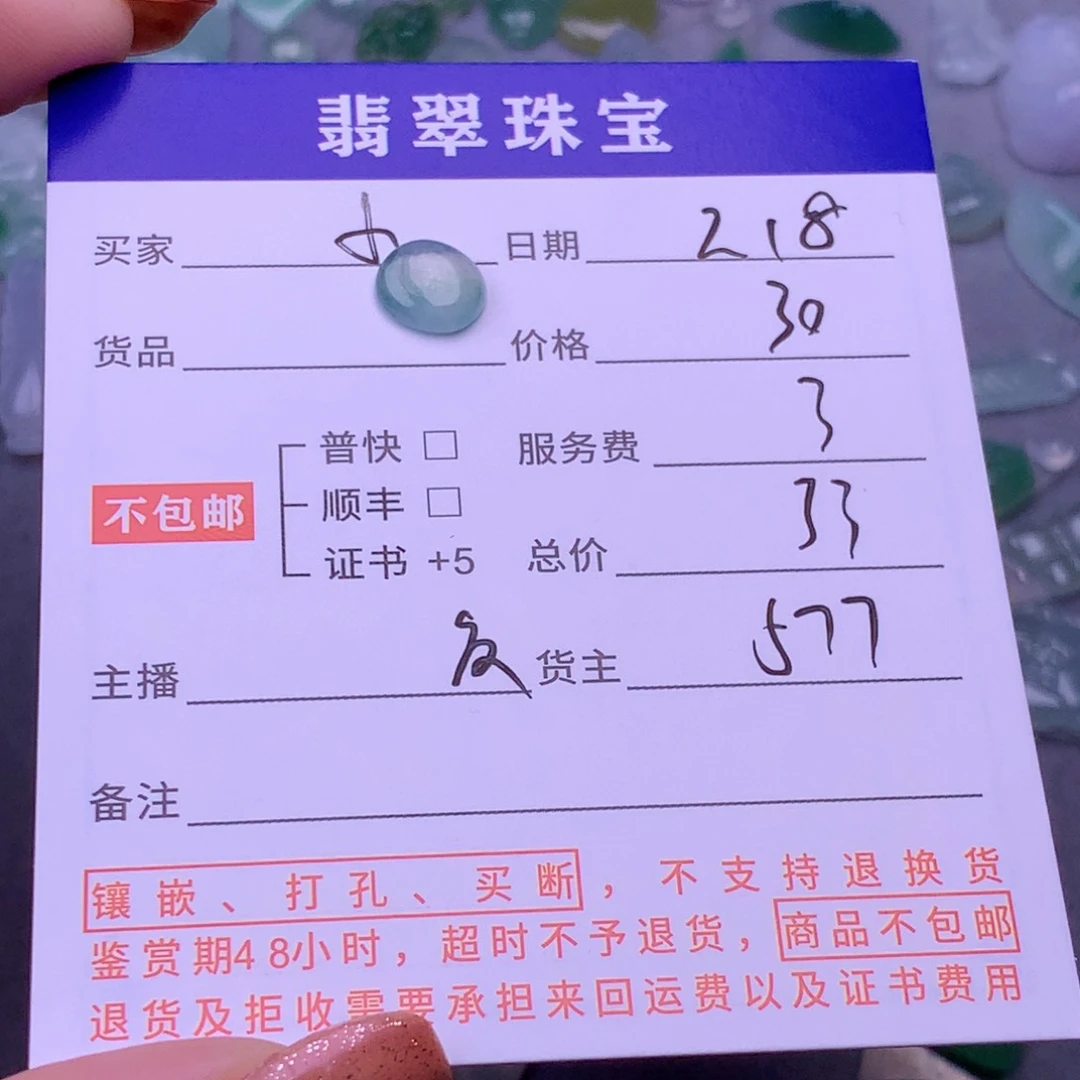 翡翠珠宝
买家 日期 218
货品 价格 30
普快 □ 服务费 3
不包邮 顺丰 □
证书 +5 总价 33
主播 货主 577
备注
镶嵌、打孔、买断，不支持退换货
鉴赏期48小时，超时不予退货，商品不包邮
退货及拒收需要承担来回运费以及证书费用